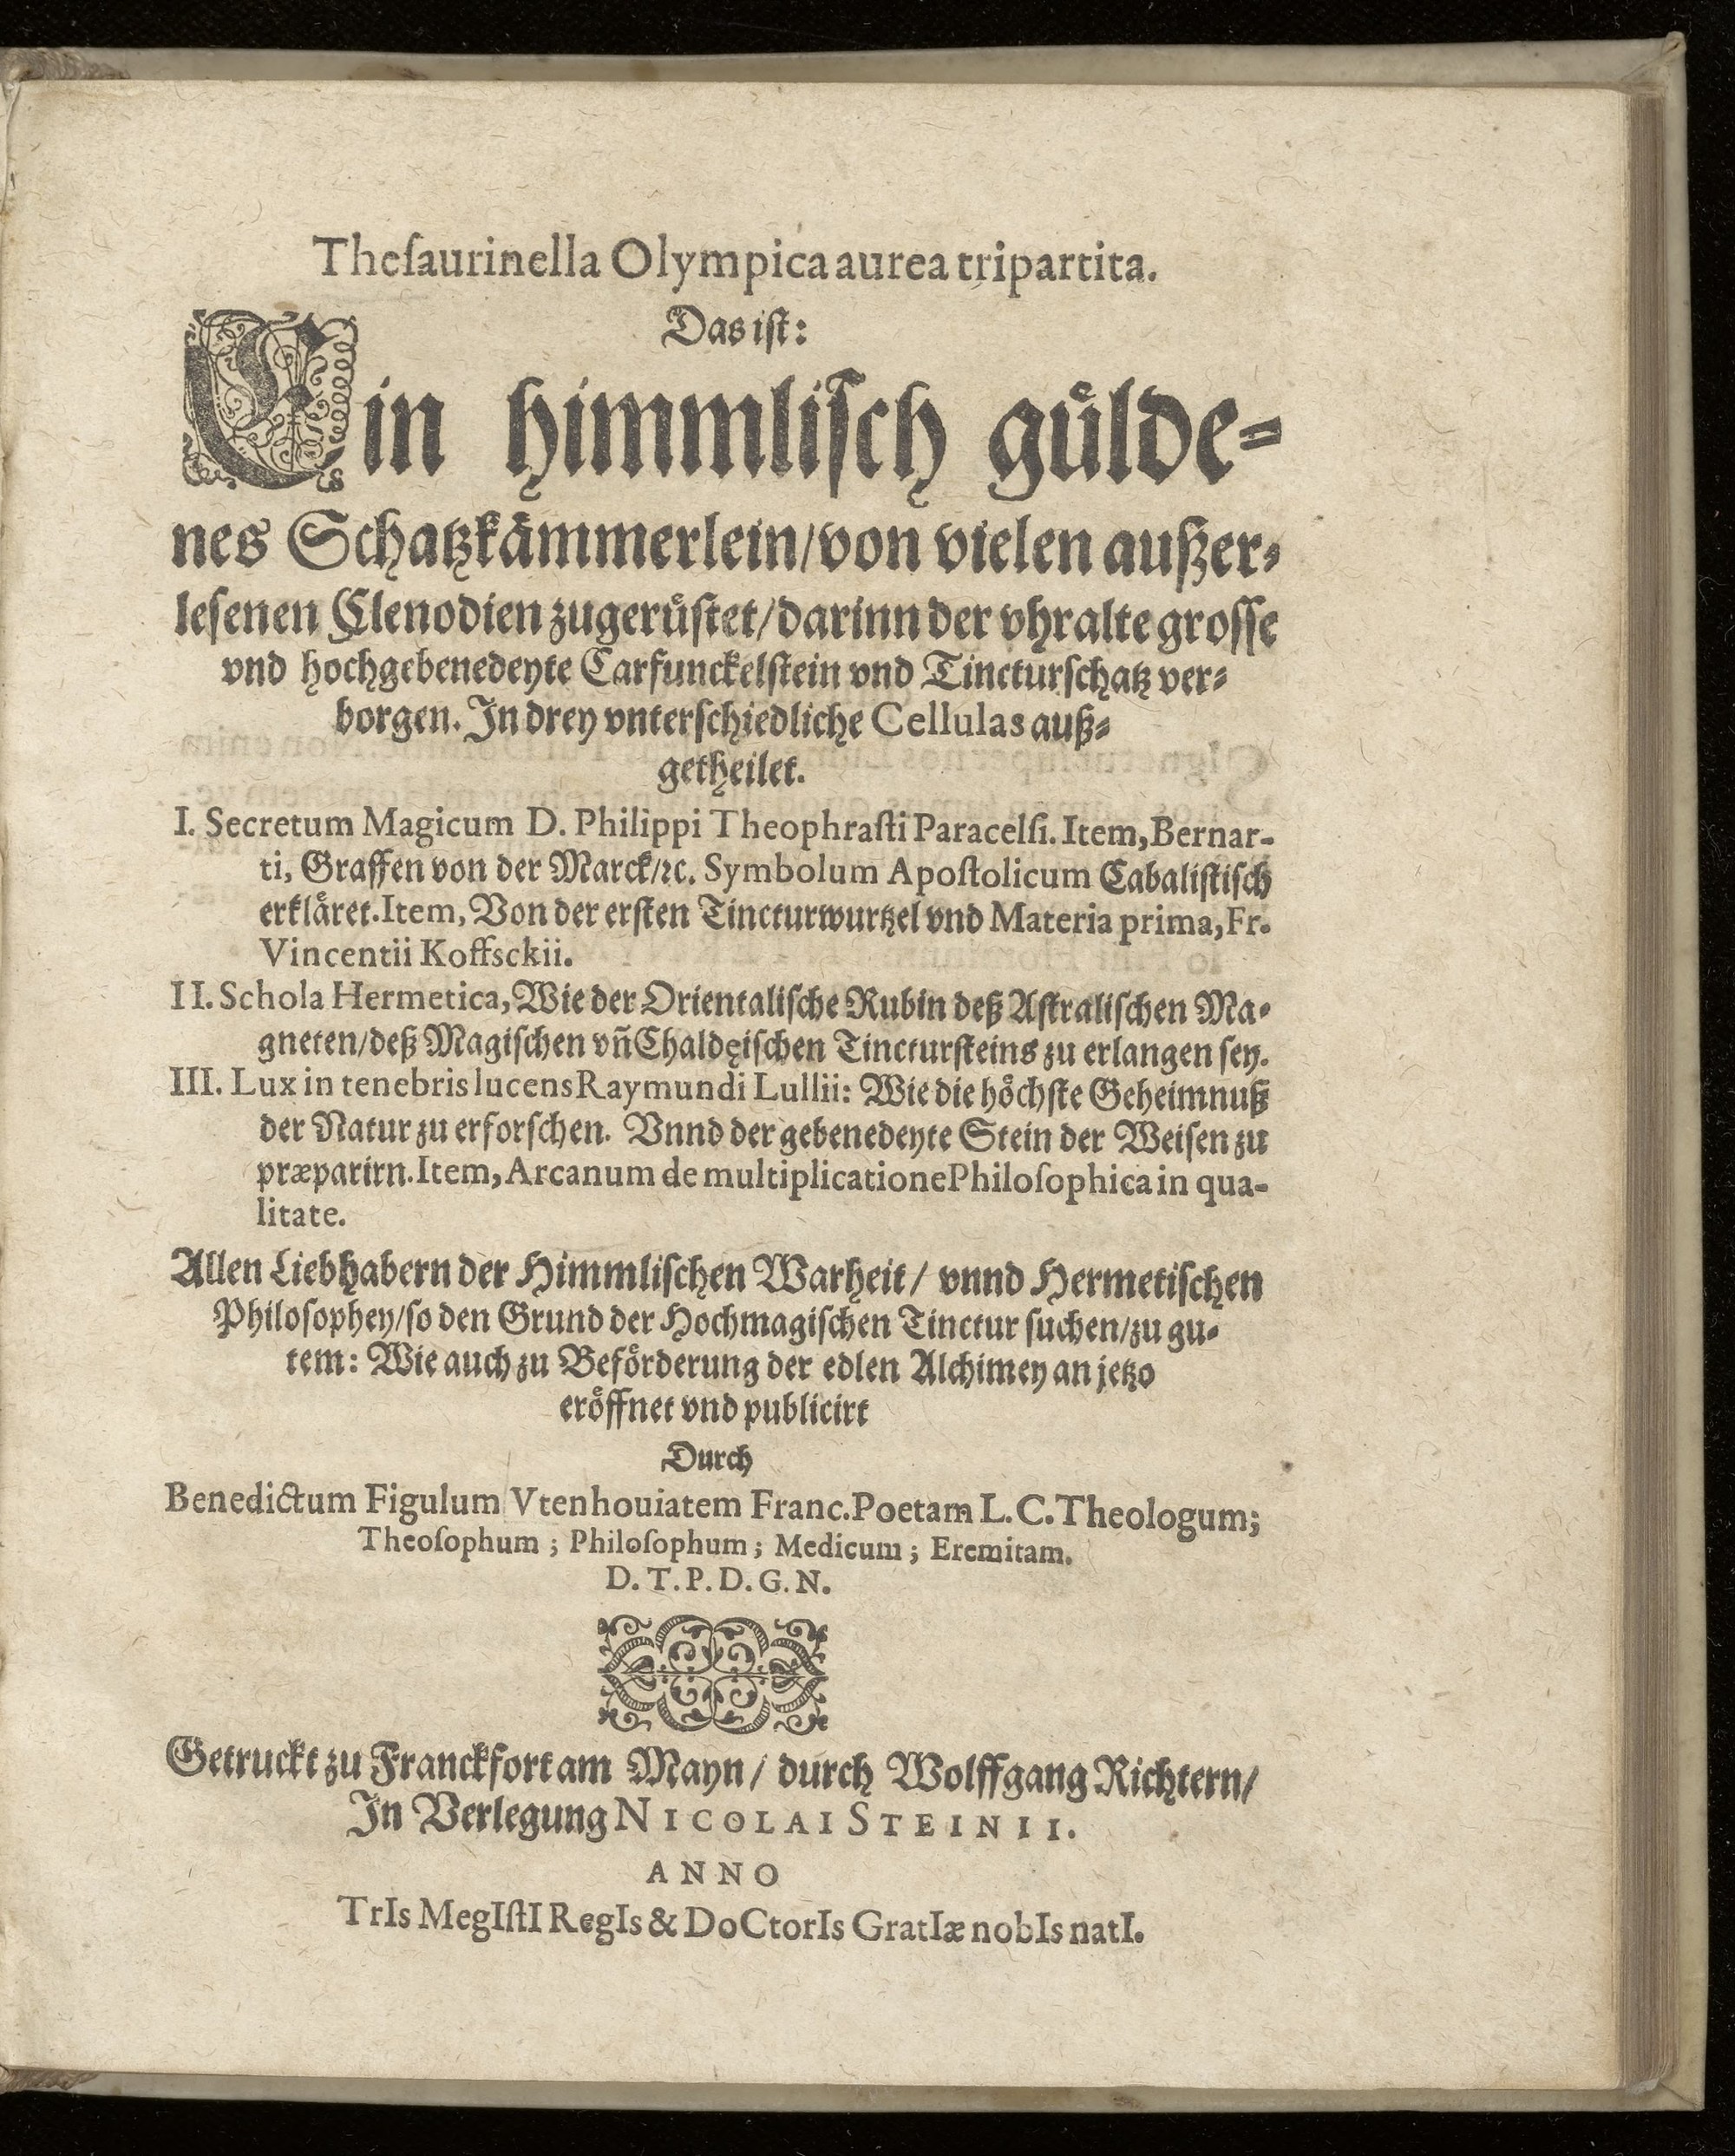 Theſaurinella Olympica aurea tripartita.
Das iſt:
Ein himmliſch guͤlde-
nes Schatzkaͤmmerlein/von vielen außer-
leſenen Clenodien zugeruͤſtet/darinn der vhralte groſſe
vnd hochgebenedeyte Carfunckelſtein vnd Tincturſchatz ver-
borgen. In drey vnterſchiedliche Cellulas auß-
getheilet.
I. Secretum Magicum D. Philippi Theophraſti Paracelſi. Item, Bernar-
ti, Graffen von der Marck/ꝛc. Symbolum Apoſtolicum Cabaliſtiſch
erklaͤret. Item, Von der erſten Tincturwurtzel vnd Materia prima, Fr.
Vincentii Koffsckii.
II. Schola Hermetica, Wie der Orientaliſche Rubin deß Aſtraliſchen Ma-
gneten/deß Magiſchen vñ Chaldęiſchen Tincturſteins zu erlangen ſey.
III. Lux in tenebris lucens Raymundi Lullii: Wie die hoͤchſte Geheimnuß
der Natur zu erforſchen. Vnnd der gebenedeyte Stein der Weiſen zu
præparirn. Item, Arcanum de multiplicatione Philoſophica in qua-
litate.
Allen Liebhabern der Himmliſchen Warheit/ vnnd Hermetiſchen
Philoſophey/ſo den Grund der Hochmagiſchen Tinctur ſuchen/zu gu-
tem: Wie auch zu Befoͤrderung der edlen Alchimey an jetzo
eroͤffnet vnd publicirt
Durch
Benedictum Figulum Vtenhouiatem Franc. Poetam L. C. Theologum;
Theoſophum; Philoſophum; Medicum; Eremitam.
D. T. P. D. G. N.
Getruckt zu Franckfort am Mayn/ durch Wolffgang Richtern/
In Verlegung NICOLAI STEINII.
ANNO
TrIs MegIſtI RegIs & DoCtorIs GratIæ nobIs natI.